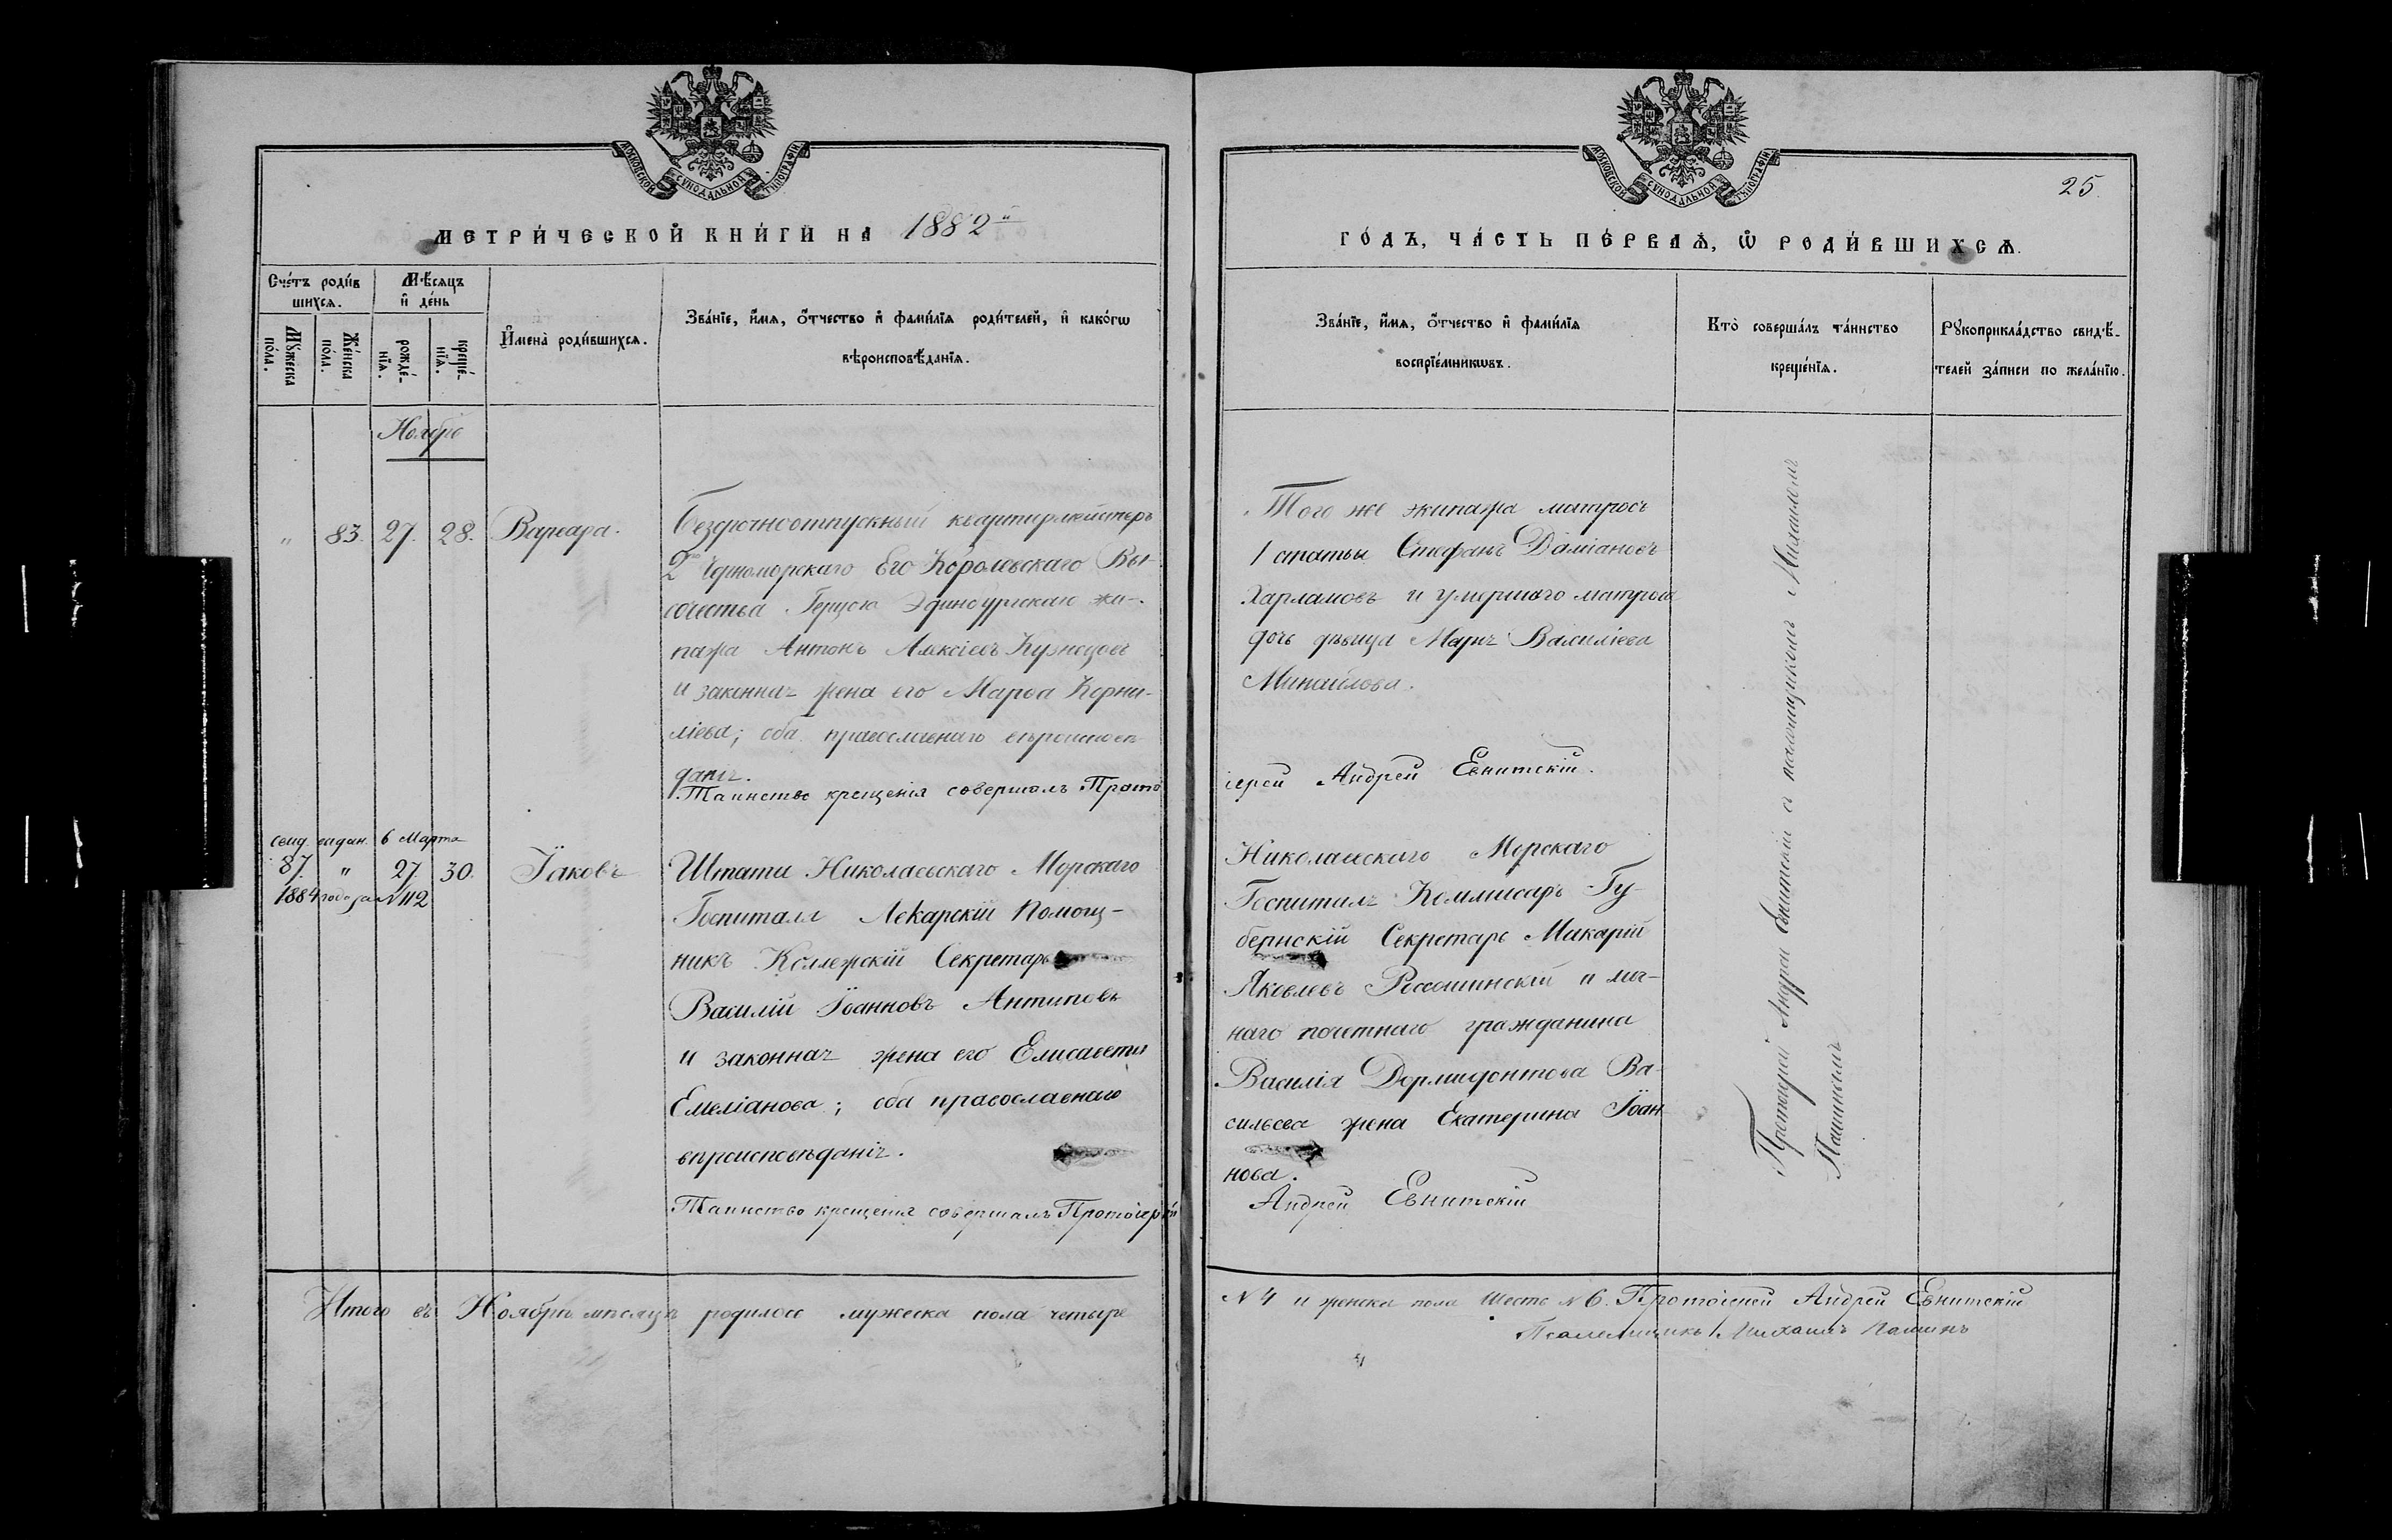 МОСКОВСКОЙ СѴНОДАЛЬНОЙ ТИПОГРАФІИ
МЕТРИ́ЧЕСКОЙ КНИ́ГИ НА 1882й
Сче́тъ роди́вшихся.
Мꙋ́жеска по́ла.
Же́нска по́ла.
Мѣ́сяцъ и҆ де́нь
рожде́нїя.
креще́нїя.
И҆мена̀ роди́вшихся.
Зва́нїе, и҆́мя, ѻ҆́тчество и҆ фами́лїя роди́телей, и҆ како́гѡ
вѣроисповѣ́данїя.
Ноябрь
" 83. 27. 28. Варвара.
Безсрочноотпускный квартирмейстеръ
2го Черноморскаго Его Королевскаго Вы-
сочества Герцога Эдинбургскаго эки-
пажа Антонъ Алексіевъ Кузнецовъ
и законная жена его Марѳа Корни-
ліева; оба православнаго вѣроисповѣ
данія.
Таинство крещенія совершалъ Прото
свид. выдан. 6 Марта
87. " 27. 30. Іаковъ
1884 года за №112
Штата Николаевскаго Морскаго
Госпиталя Лекарскій Помощ-
никъ Коллежскій Секретарь
Василій Іоанновъ Антиповъ
и законная жена его Елисавета
Емеліанова; оба православнаго
вѣроисповѣданія.
Таинство крещенія совершалъ Протоіерей
Итого въ Ноябрѣ мѣсяцѣ родилось мужеска пола четыре
МОСКОВСКОЙ СѴНОДАЛЬНОЙ ТИПОГРАФІИ
25.
ГО́ДЪ, ЧА́СТЬ ПЕ́РВАѦ, Ѡ҆ РОДИ́ВШИХСѦ.
Зва́нїе, и҆́мя, ѻ҆́тчество и҆ фами́лїя
воспрїе́мникѡвъ.
Кто̀ соверша́лъ та́инство
креще́нїя.
Рꙋкоприкла́дство свидѣ́-
телей за́писи по жела́нїю.
Того же экипажа матросъ
1 статьи Стефанъ Даміановъ
Харламовъ и умершаго матроса
дочь дѣвица Марія Василіева
Минайлова.
іерей Андрей Евнитскій.
Николаевскаго Морскаго
Госпиталя Коммисаръ Гу-
бернскій Секретарь Макарій
Яковлевъ Россошинскій и лич-
наго почетнаго гражданина
Василія Дормидонтова Ва-
сильева жена Екатерина Іоан-
нова.
Андрей Евнитскій
Протоіерей Андрей Евнитскій с псаломщикомъ Михаиломъ
Пашинымъ
№ 4 и женска пола шесть № 6. Протоіерей Андрей Евнитскій
Псаломщикъ Михаилъ Пашинъ